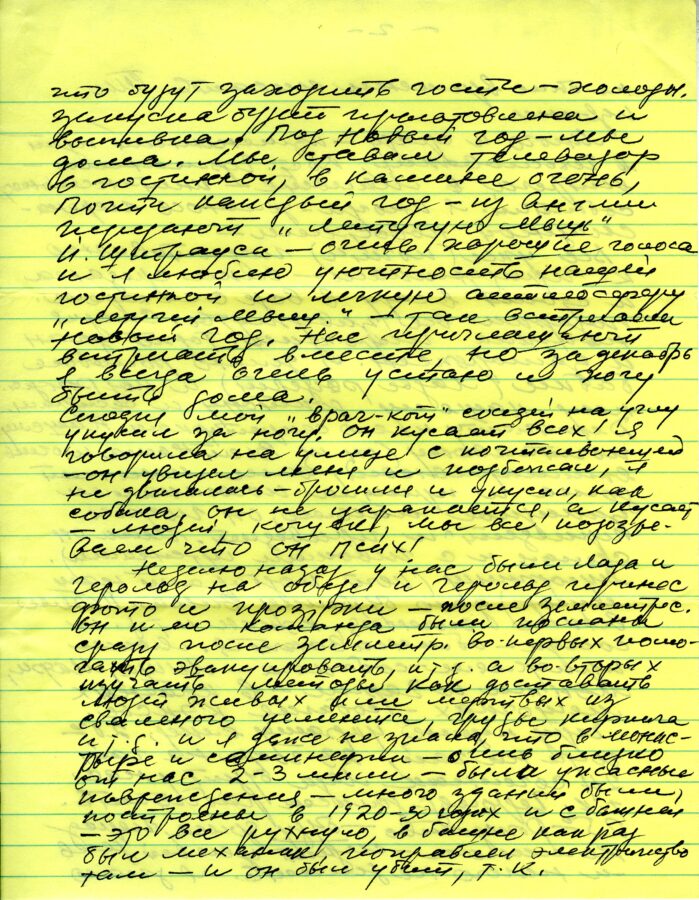 - 2 -
что будут заходить гости – холодн.
закуска будет приготовлена и
выпивка. Под Новый год – мы
дома. Мы ставам телевизор
в гостинной, в камине огонь,
почти каждый год – из Англии
передают „Летучую Мышь"
И. Штрауса – очень хорошие голоса
и я люблю уютность нашей
гостинной и легкую атмосферу
„Летучей Мыши." – так встречаем
Новый год. Нас приглашают
встречать вместе, но за декабрь
я всегда очень устаю и хочу
быть дома.
Сегодня мой „враг-кот" соседей на углу
укусил за ногу. Он кусает всех! Я
говорила на улице с почтальоншей
– он увидел меня и подбежал, я
не двигалась – бросился и укусил, как
собака, он не царапается, а кусает
– людей, кошек, мы все подозре-
ваем что он псих!
Неделю назад у нас были Лада и
Герольд на обеде и Герольд принес
фото и – после землетрес.
он и его команда были посланы
сразу после землетр. во-первых помо-
гать эвакуировать, и т.д. а во-вторых
изучать методы как доставать
людей живых или мертвых из
сваленого цемента, груды кирпича
и т.д. и я даже не знала, что в монас-
тыре и семинарии – очень близко
от нас 2-3 мили – были ужасные
повреждения – много зданий были
построены в 1920-30 годах и с башней
– это все рухнуло, в башне как раз
был механик, поправлял электричество
там – и он был убит, т.к.